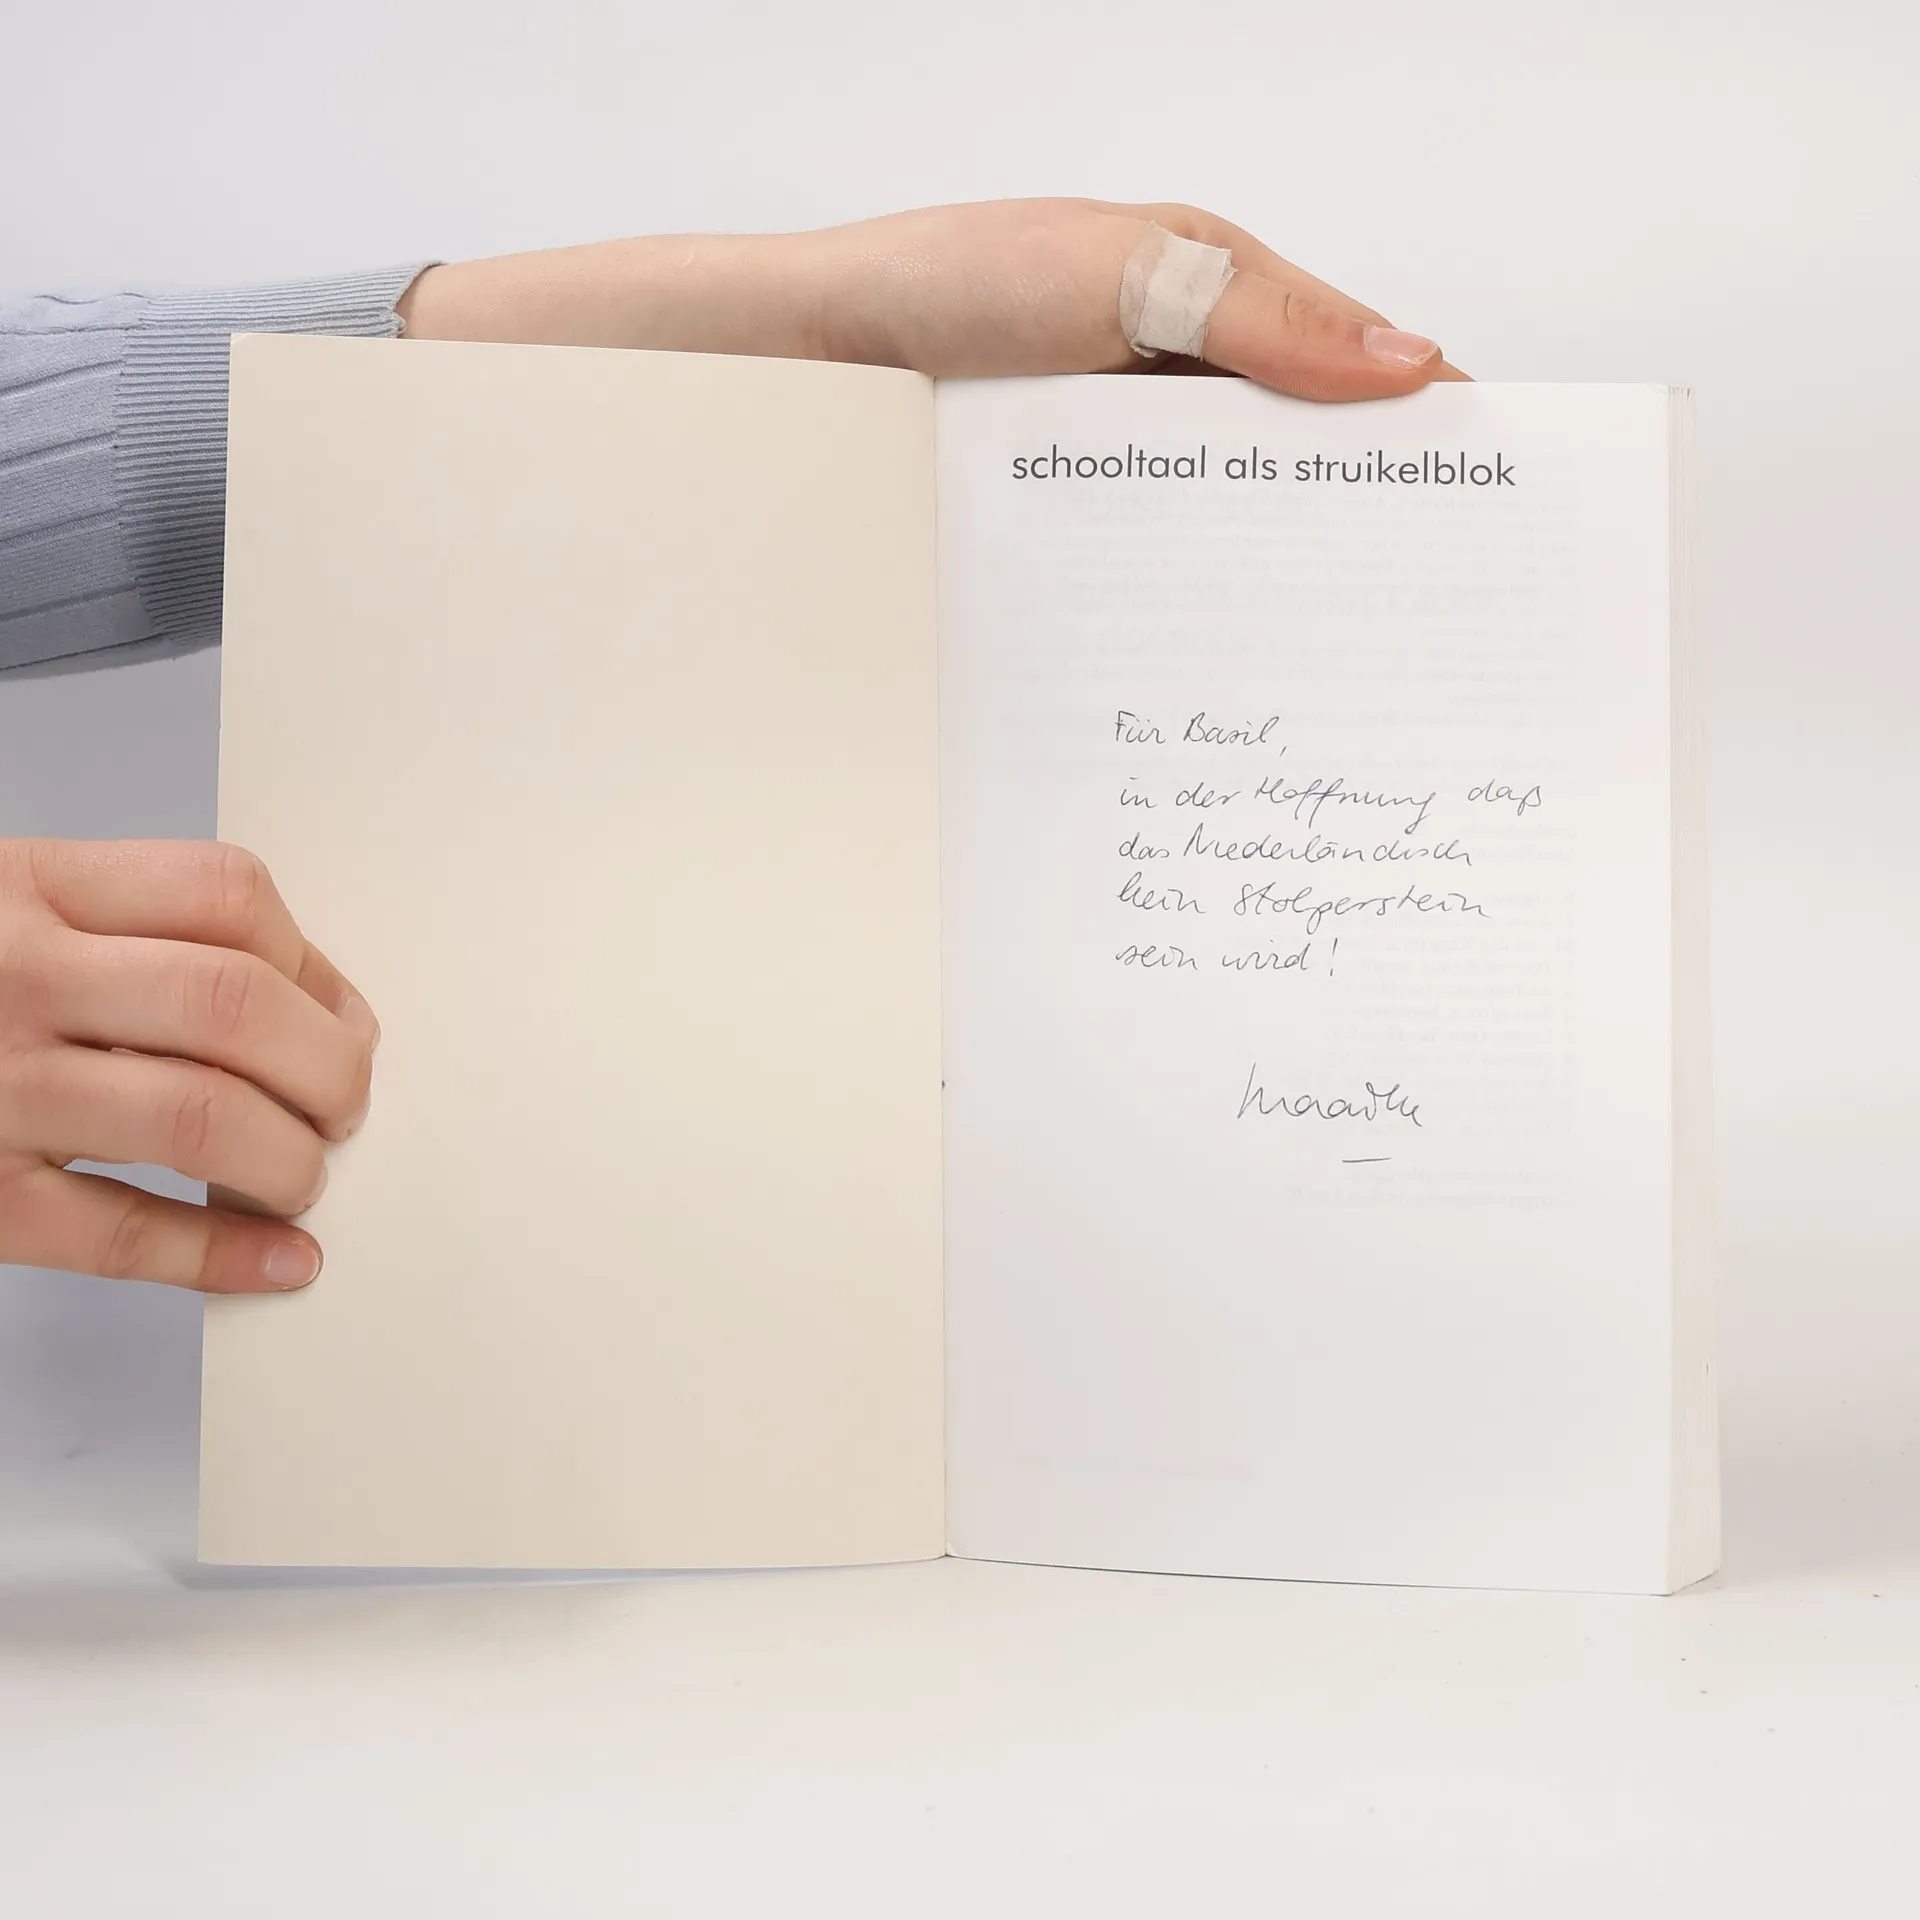 schooltaal als struikelblok
Für Basil,
in der Hoffnung daß
das Niederländisch
kein Stolperstein
sein wird!